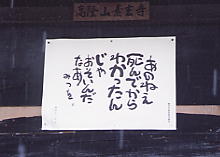 高隆山養玄寺
あのねえ
死んでから
わかったん
じゃ
おそいんだ
なあ
みつを